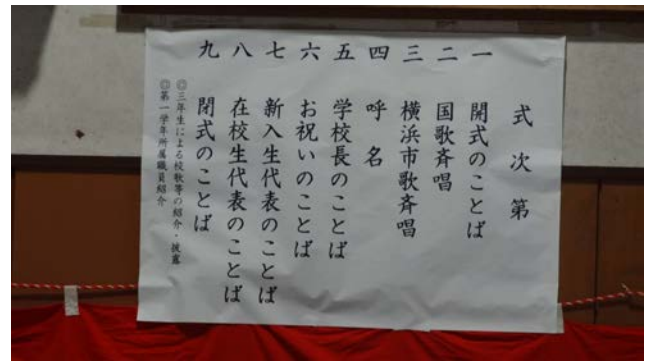 式次第
一 開式のことば
二 国歌斉唱
三 横浜市歌斉唱
四 呼名
五 学校長のことば
六 お祝いのことば
七 新入生代表のことば
八 在校生代表のことば
九 閉式のことば
◎三年生による校歌等の紹介・披露
◎第一学年所属職員紹介